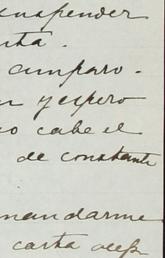 suspender
amparo.
y espero
cabe el
de constante
mandarme
carta